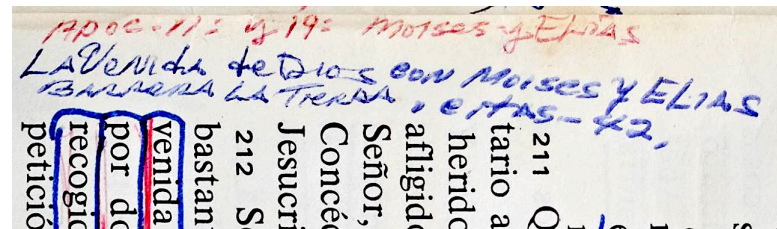 Apoc-11: y 19: Moises y ELIAS
LA VeNida de DIOS con Moises y ELIAS
BARRERA LA TIERRA,
211 Q
tario a
herido
afligido
Señor,
Concéd
Jesucri
212 Se
bastan
venida
por do
recogid
petició